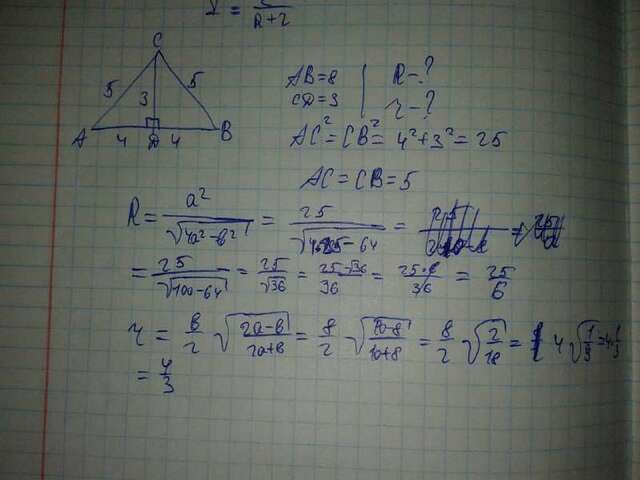 R+2
C
5 3 5
A 4 D 4 B
AB=8 | R-?
CD=3 | r-?
AC²=CB²=4²+3²=25
AC=CB=5
R= a²/√(4a²-b²) = 25/√(4·25-64) =
= 25/√(100-64) = 25/√36 = 25·√36/36 = 25·6/36 = 25/6
r = b/2 √((2a-b)/(2a+b)) = 8/2 √((10-8)/(10+8)) = 8/2 √(2/18) = 4 √(1/9) = 4·1/3
= 4/3